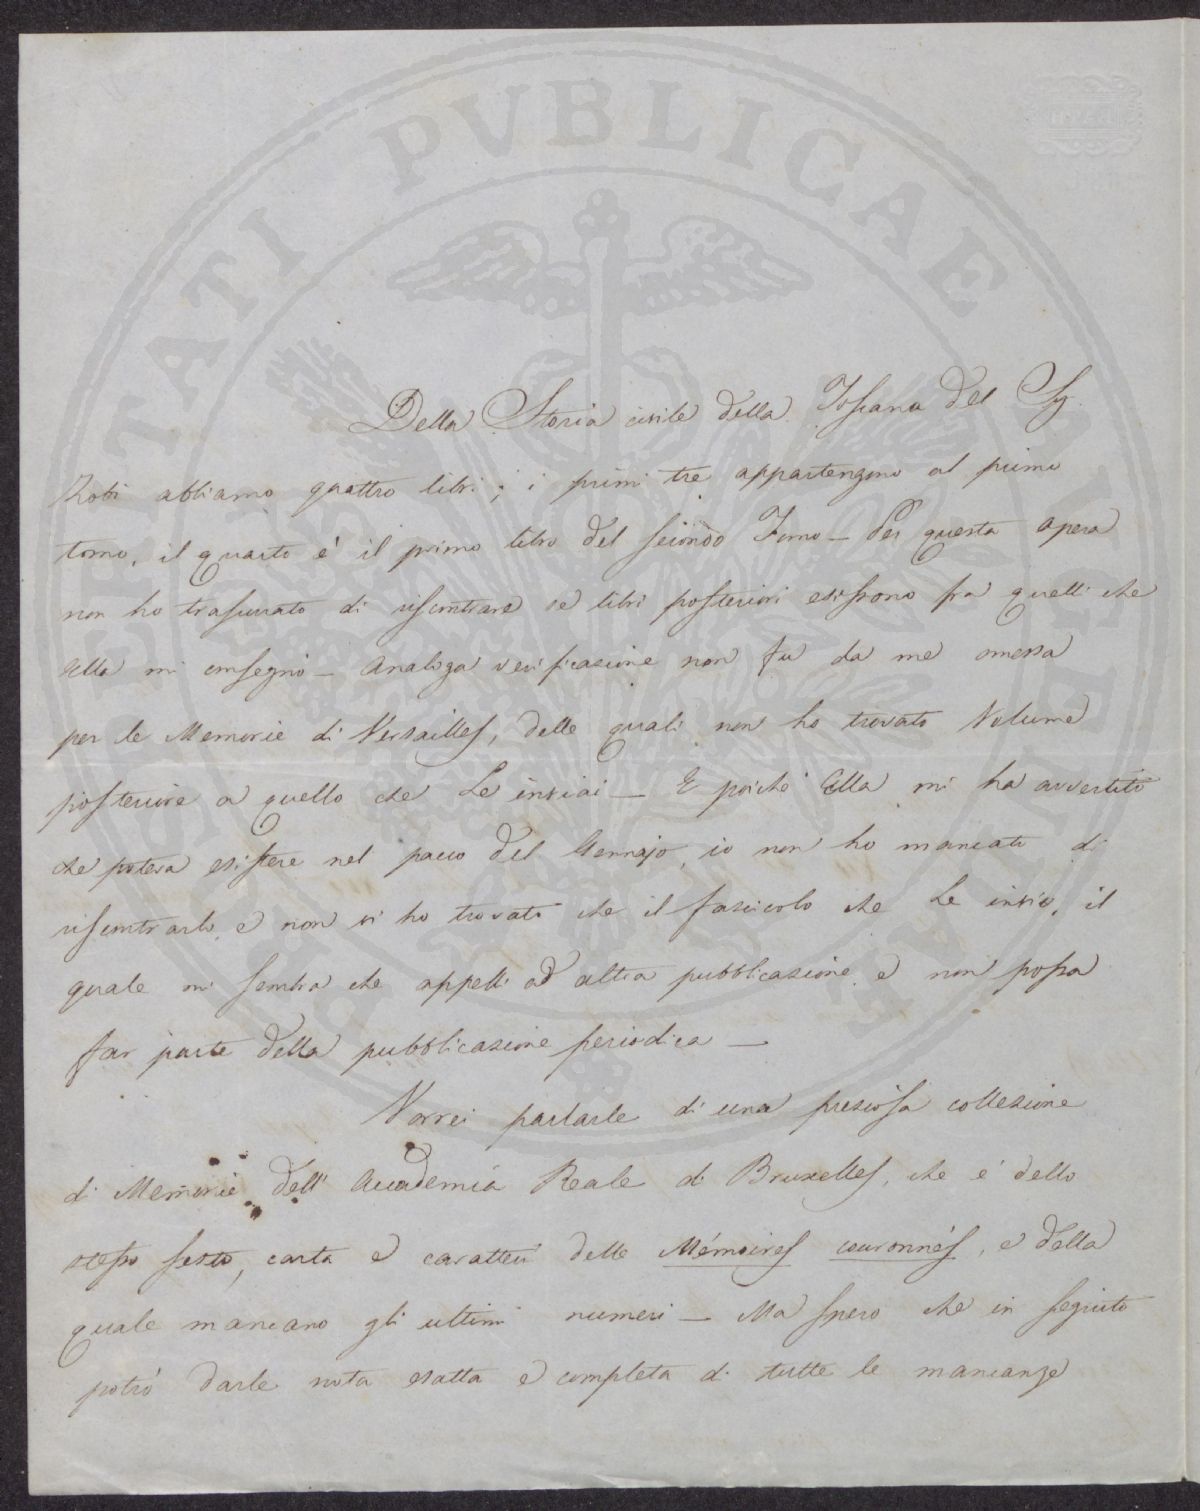 PVBLICAE
Della Storia civile della Toscana del Sig.
Zobi abbiamo quattro libri; i primi tre appartengono al primo
tomo, il quarto è il primo libro del secondo Tomo — Per questa opera
non ho trascurato di riscontrare se libri posteriori esistono fra quelli che
Ella mi consegnò — Analoga verificazione non fu da me omessa
per le Memorie di Versailles, delle quali non ho trovato Volume
posteriore a quello che Le inviai — E poichè Ella mi ha avvertito
che poteva esistere nel pacco del Gennajo, io non ho mancato di
riscontrarlo, e non vi ho trovato che il fascicolo che Le invio, il
quale mi sembra che appelli ad altra pubblicazione e non possa
far parte della pubblicazione periodica —
Vorrei parlarle di una preziosa collezione
di Memorie dell' Accademia Reale di Bruxelles, che è dello
stesso sesto, carta e caratteri delle Mémoires couronnés, e della
quale mancano gli ultimi numeri — Ma spero che in seguito
potrò darle nota esatta e completa di tutte le mancanze